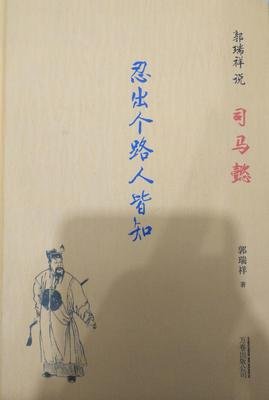 郭瑞祥 说
司马懿
忍出个路人皆知
郭瑞祥 著
万卷出版公司